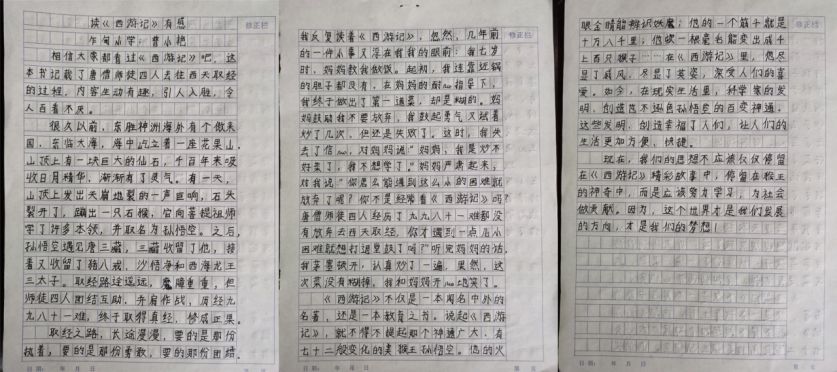 修正栏
读《西游记》有感
乍甸小学：曹小艳
相信大家都看过《西游记》吧，这
本书记载了唐僧师徒四人去往西天取经
的过程，内容生动有趣，引人入胜，令
人百看不厌。
很久以前，东胜神洲海外有个傲来
国，东临大海，海中屹立着一座花果山。
山顶上有一块巨大的仙石，千百年来吸
收日月精华，渐渐有了灵气。有一天，
山顶上发出天崩地裂的一声巨响，石头
裂开了，蹦出一只石猴，它向菩提祖师
学了许多本领，并取名为孙悟空。之后，
孙悟空遇见唐三藏，三藏收留了他，接
着又收留了猪八戒，沙悟净和西海龙王
三太子。取经路途遥远，魔障重重，但
师徒四人团结互助，并肩作战，历经九
九八十一难，终于取得真经，修成正果。
取经之路，长途漫漫，要的是那份
执着，要的是那份勇敢，要的是那份团结。
日期： 年 月 日
修正栏
我反复读着《西游记》，忽然，几年前
的一件小事又浮在我的眼前：我七岁
时，妈妈教我做饭。起初，我连靠近锅
的胆子都没有，在妈妈的耐心指导下，
我终于做出了第一道菜，却是糊的。妈
妈鼓励我不要放弃，我鼓起勇气又试着
炒了几次，但还是失败了。这时，我失
去了信心，对妈妈说“妈妈，我是炒不
好菜了，我不想学了。”妈妈严肃起来，
对我说“你怎么能遇到这么小的困难就
放弃了呢？你不是经常看《西游记》吗？
唐僧师徒四人经历了九九八十一难都没
有放弃去西天取经，你才遇到一点儿小
困难就想打退堂鼓了吗？”听完妈妈的话，
我茅塞顿开，认真炒了一遍，果然，这
次菜没有糊掉，我和妈妈开心地笑了。
《西游记》不仅是一本闻名中外的
名著，还是一本教育之书。说起《西游
记》，就不得不提起那个神通广大、有
七十二般变化的美猴王孙悟空。他的火
日期： 年 月 日
修正栏
眼金睛能辨识妖魔；他的一个筋斗就是
十万八千里；他的一根毫毛能变出成千
上百只猴子……在《西游记》里，他尽
显了威风，尽显了英姿，深受人们的喜
爱。如今，在现实生活里，科学家的发
明、创造也不逊色孙悟空的百变神通，
这些发明、创造幸福了人们，让人们的
生活更加方便、快捷。
现在，我们的思想不应该仅仅停留
在《西游记》精彩故事中，停留在猴王
的神奇中，而是应该努力学习，为社会
做贡献。因为，这个世界才是我们发展
的方向，才是我们的梦想！
日期： 年 月 日